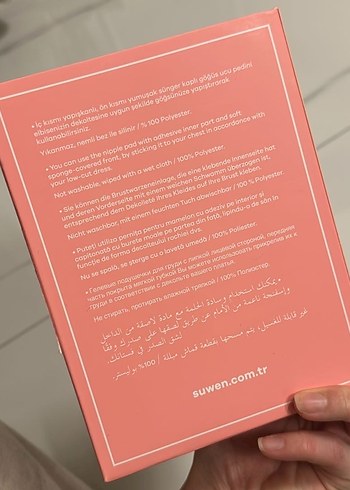 • İç kısmı yapışkanlı, ön kısmı yumuşak sünger kaplı göğüs ucu pedini
elbisenizin dekoltesine uygun şekilde göğsünüze yapıştırarak
kullanabilirsiniz.
Yıkanmaz, nemli bez ile silinir / % 100 Polyester.
• You can use the nipple pad with adhesive inner part and soft
sponge-covered front, by sticking it to your chest in accordance with
your low-cut dress.
Not washable, wiped with a wet cloth / 100% Polyester.
• Sie können die Brustwarzeneinlage, die eine klebende Innenseite hat
und deren Vorderseite mit einem weichen Schwamm überzogen ist,
entsprechend dem Dekolleté Ihres Kleides auf Ihre Brust kleben.
Nicht waschbar, mit einem feuchten Tuch abwischbar / 100 % Polyester.
• Puteți utiliza pernița pentru mamelon cu adeziv pe interior și
capitonată cu burete moale pe partea din față, lipindu-o de sân în
funcție de forma decolteului rochiei dvs.
Nu se spală, se șterge cu o lavetă umedă / 100% Polyester.
• Гелевые подушечки для груди с липкой лицевой стороной, передняя
часть покрыта мягкой губкой Вы можете использовать прикрепив их к
груди в соответствии с декольте вашего платья.
Не стирать, протирать влажной тряпкой / 100% Полиэстер.
• يمكنك استخدام وسادة الحلمة مع مادة لاصقة من الداخل
وإسفنجة ناعمة من الأمام عن طريق لصقها على صدرك وفقًا
لشق الصدر في فستانك.
غير قابلة للغسيل، يتم مسحها بقطعة قماش مبللة / 100% بوليستر.
suwen.com.tr